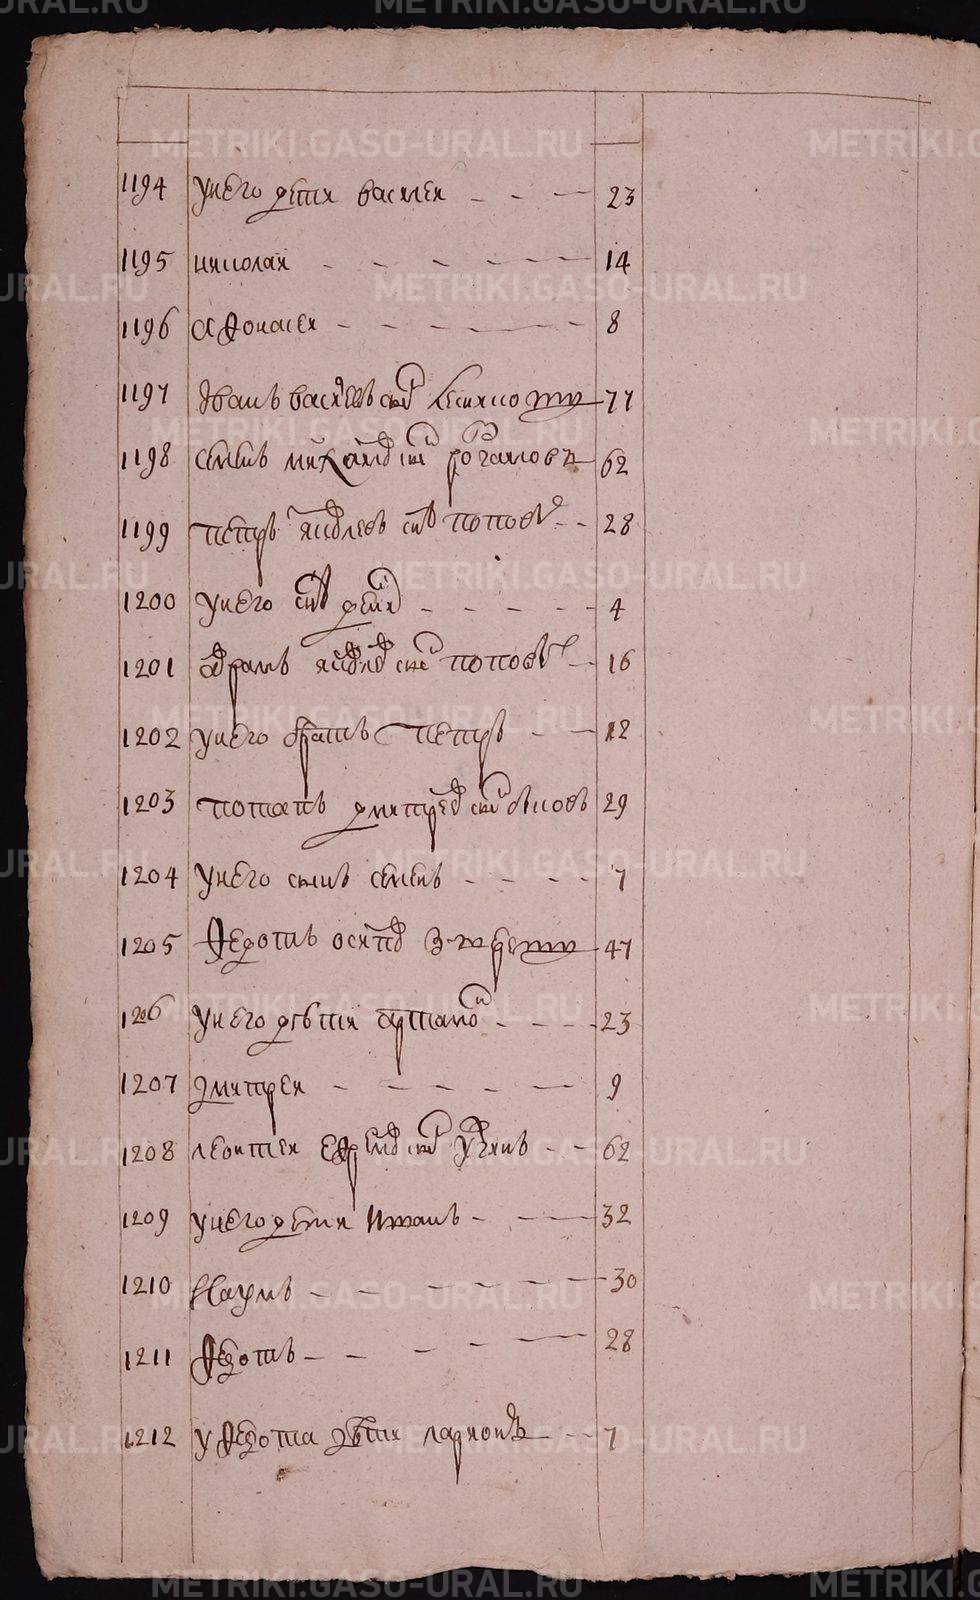 1194 У него дети Василей 23
1195 Николай 14
1196 Афонасей 8
1197 Иванъ Васильевъ снъ 77
1198 Семенъ Михайлов снъ 62
1199 Петръ Яковлевъ снъ Поповъ 28
1200 У него снъ 4
1201 Абрамъ Яковлев снъ Поповъ 16
1202 У него братъ Петръ 12
1203 Потапъ Дмитреев снъ 29
1204 У него сынъ Семенъ 7
1205 Федотъ Осипов 47
1206 У него дѣти Артамон 23
1207 Дмитрей 9
1208 Леонтей Ефремов снъ 62
1209 У него дети Иванъ 32
1210 Наумъ 30
1211 Федотъ 28
1212 У Федота дѣти Ларионъ 7
METRIKI.GASO-URAL.RU